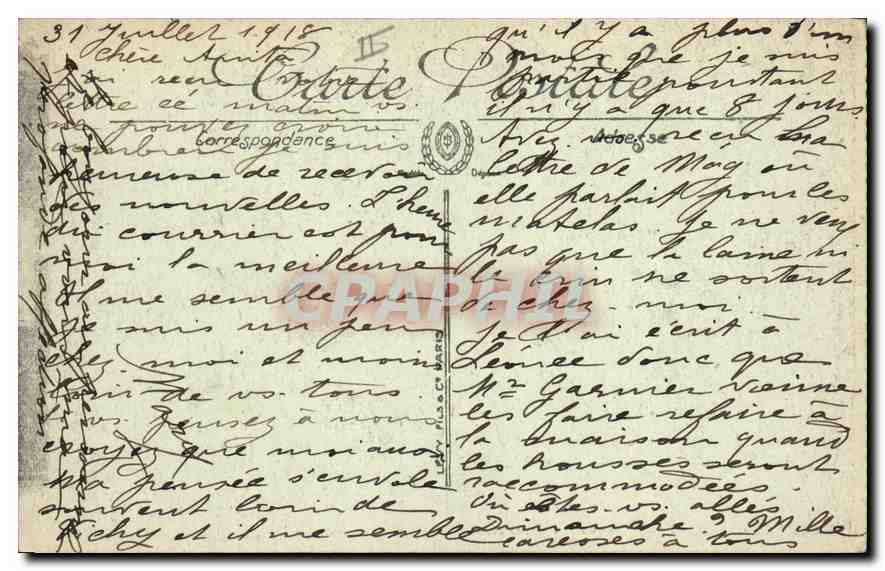 31 Juillet 1918
II
Chère Anita
Carte Postale
Correspondance
Adresse
lettre ce matin vs.
ne pouvez croire
combien je suis
heureuse de recevoir
des nouvelles. L'heure
du courrier est pour
moi la meilleure
Il me semble que
je suis un peu
chez moi et moins
loin de vs. tous.
vs. pensez à nous
croyez que moi aussi
ma pensée s'envole
souvent loin de
Vichy et il me semble
qu'il y a plus d'un
mois que je suis
partie pourtant
il n'y a que 8 jours.
Avez vs. reçu ma
lettre de Mag où
elle parlait pour les
matelas. Je ne veux
pas que la laine ni
le crin ne sortent
de chez moi.
je l'ai écrit à
Léonce donc que
Mr Garnier vienne
les faire refaire à
la maison quand
les housses seront
raccommodées.
Où êtes vs. allés
Dimanche? Mille
caresses à tous
LEVY FILS & Cie PARIS
CPAPHIL